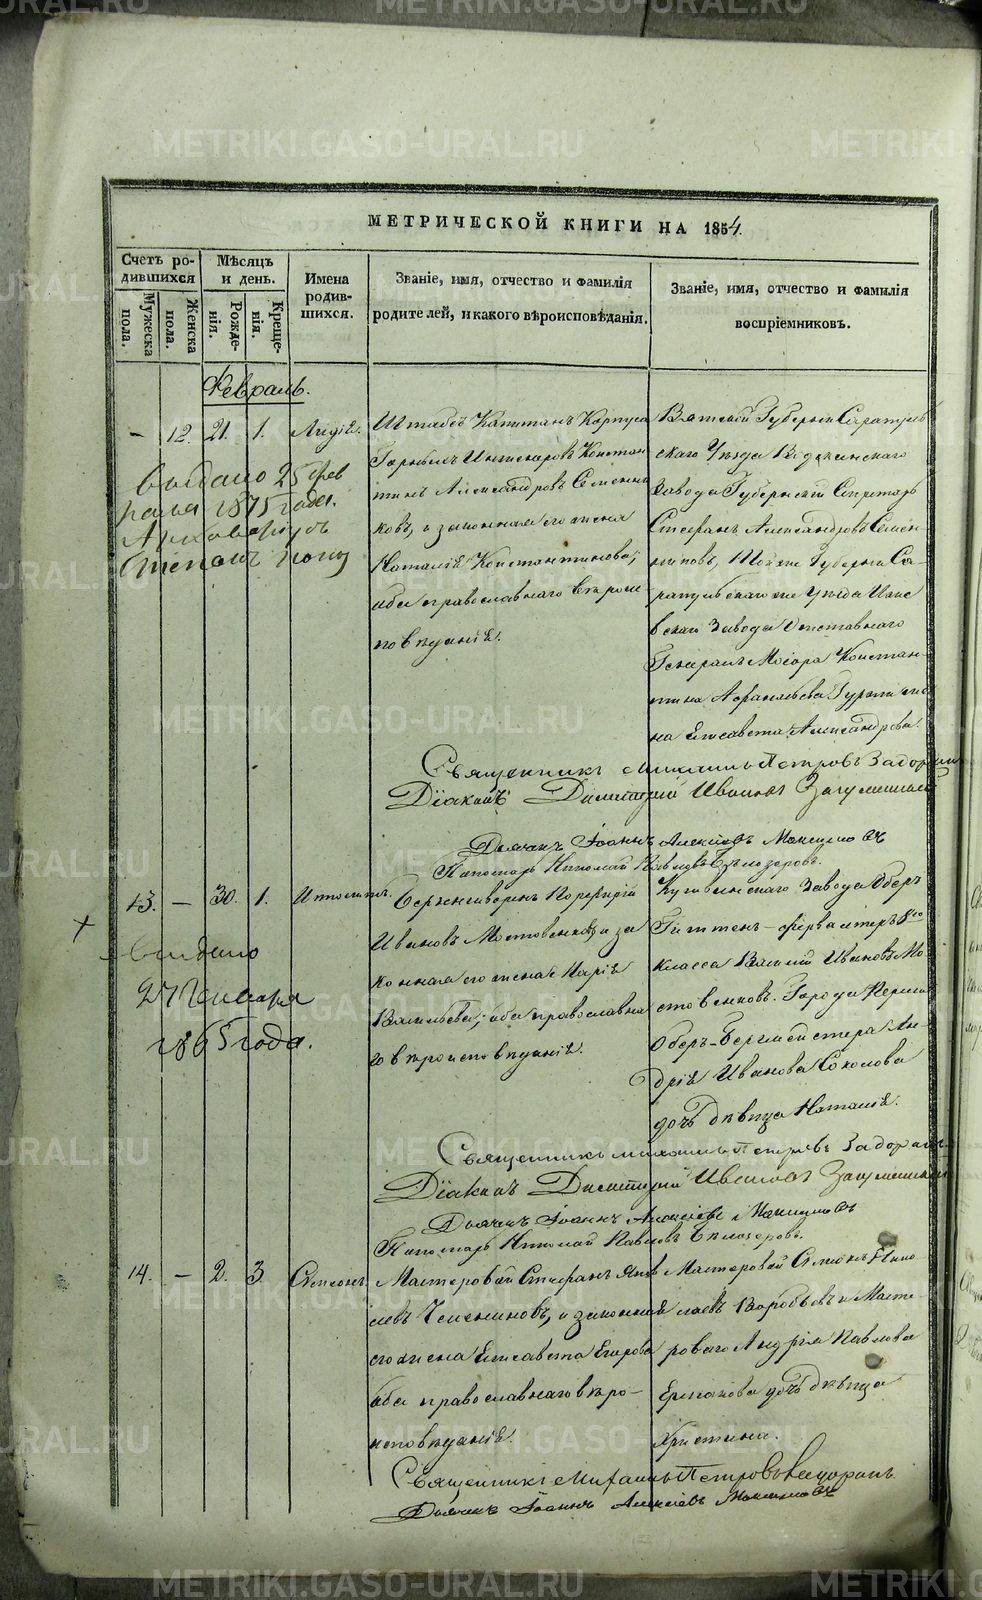 МЕТРИЧЕСКОЙ КНИГИ НА 1854.
Счетъ ро-
дившихся
Мужеска
пола.
Женска
пола.
Мѣсяцъ
и день.
Рожде-
нія.
Креще-
нія.
Имена
родив-
шихся.
Званіе, имя, отчество и фамилія
родителей, и какого вѣроисповѣданія.
Званіе, имя, отчество и фамилія
воспріемниковъ.
Февраль.
- 12. 21. 1. Лидія.
Штабсъ Капитанъ Корпуса
Горныхъ Инженеровъ Констан
тинъ Александровъ Семенни
ковъ, и законная его жена
Наталія Константинова;
оба православнаго вѣроис
повѣданія.
Вятской Губерніи Сарапуль
скаго Уѣзда Воткинскаго
Завода Губернскій Секретарь
Стефанъ Александровъ Семен
никовъ, Тойже Губерніи Са-
рапульскаго же Уѣзда Ижев
скаго Завода Отставнаго
Генералъ Маіора Констан-
тина
на Елисавета Александрова.
выдано 25 фев
раля 1875 года.
Священникъ Михаилъ Петровъ Задорин
Діаконъ Димитрій Ивановъ
Дьячекъ Іоаннъ Алексіевъ Максимовъ
Пономарь Николай Павловъ Бѣлозеровъ.
13. - 30. 1. Ипполитъ.
Бергешворенъ Порфирій
Ивановъ Мостовенковъ и за
конная его жена Марія
Васильева; оба православна
го вѣроисповѣданія.
Кушвинскаго Завода Оберъ
Гиттен-фервалтеръ 8го
класса Василій Ивановъ Мо
стовенковъ. Города Перми
Оберъ-Бергмейстера Ан-
дрія Иванова Соколова
дочь дѣвица Наталія.
выдано
27 Января
1865 года.
Священникъ Михаилъ Петровъ Задорин
Діаконъ Димитрій Ивановъ
Дьячекъ Іоаннъ Алексіевъ Максимовъ
Пономарь Николай Павловъ Бѣлозеровъ.
14. - 2. 3. Симеонъ.
Мастеровой Стефанъ Яков
левъ и законная
его жена Елисавета Егорова
оба православнаго вѣро-
исповѣданія.
Мастеровой Симеонъ Нико
лаевъ Воробьевъ и Масте
роваго Андрія Павлова
Ермакова дочь дѣвица
Христина.
Священникъ Михаилъ Петровъ Задоринъ
Дьячекъ Іоаннъ Алексіевъ Максимовъ
METRIKI.GASO-URAL.RU